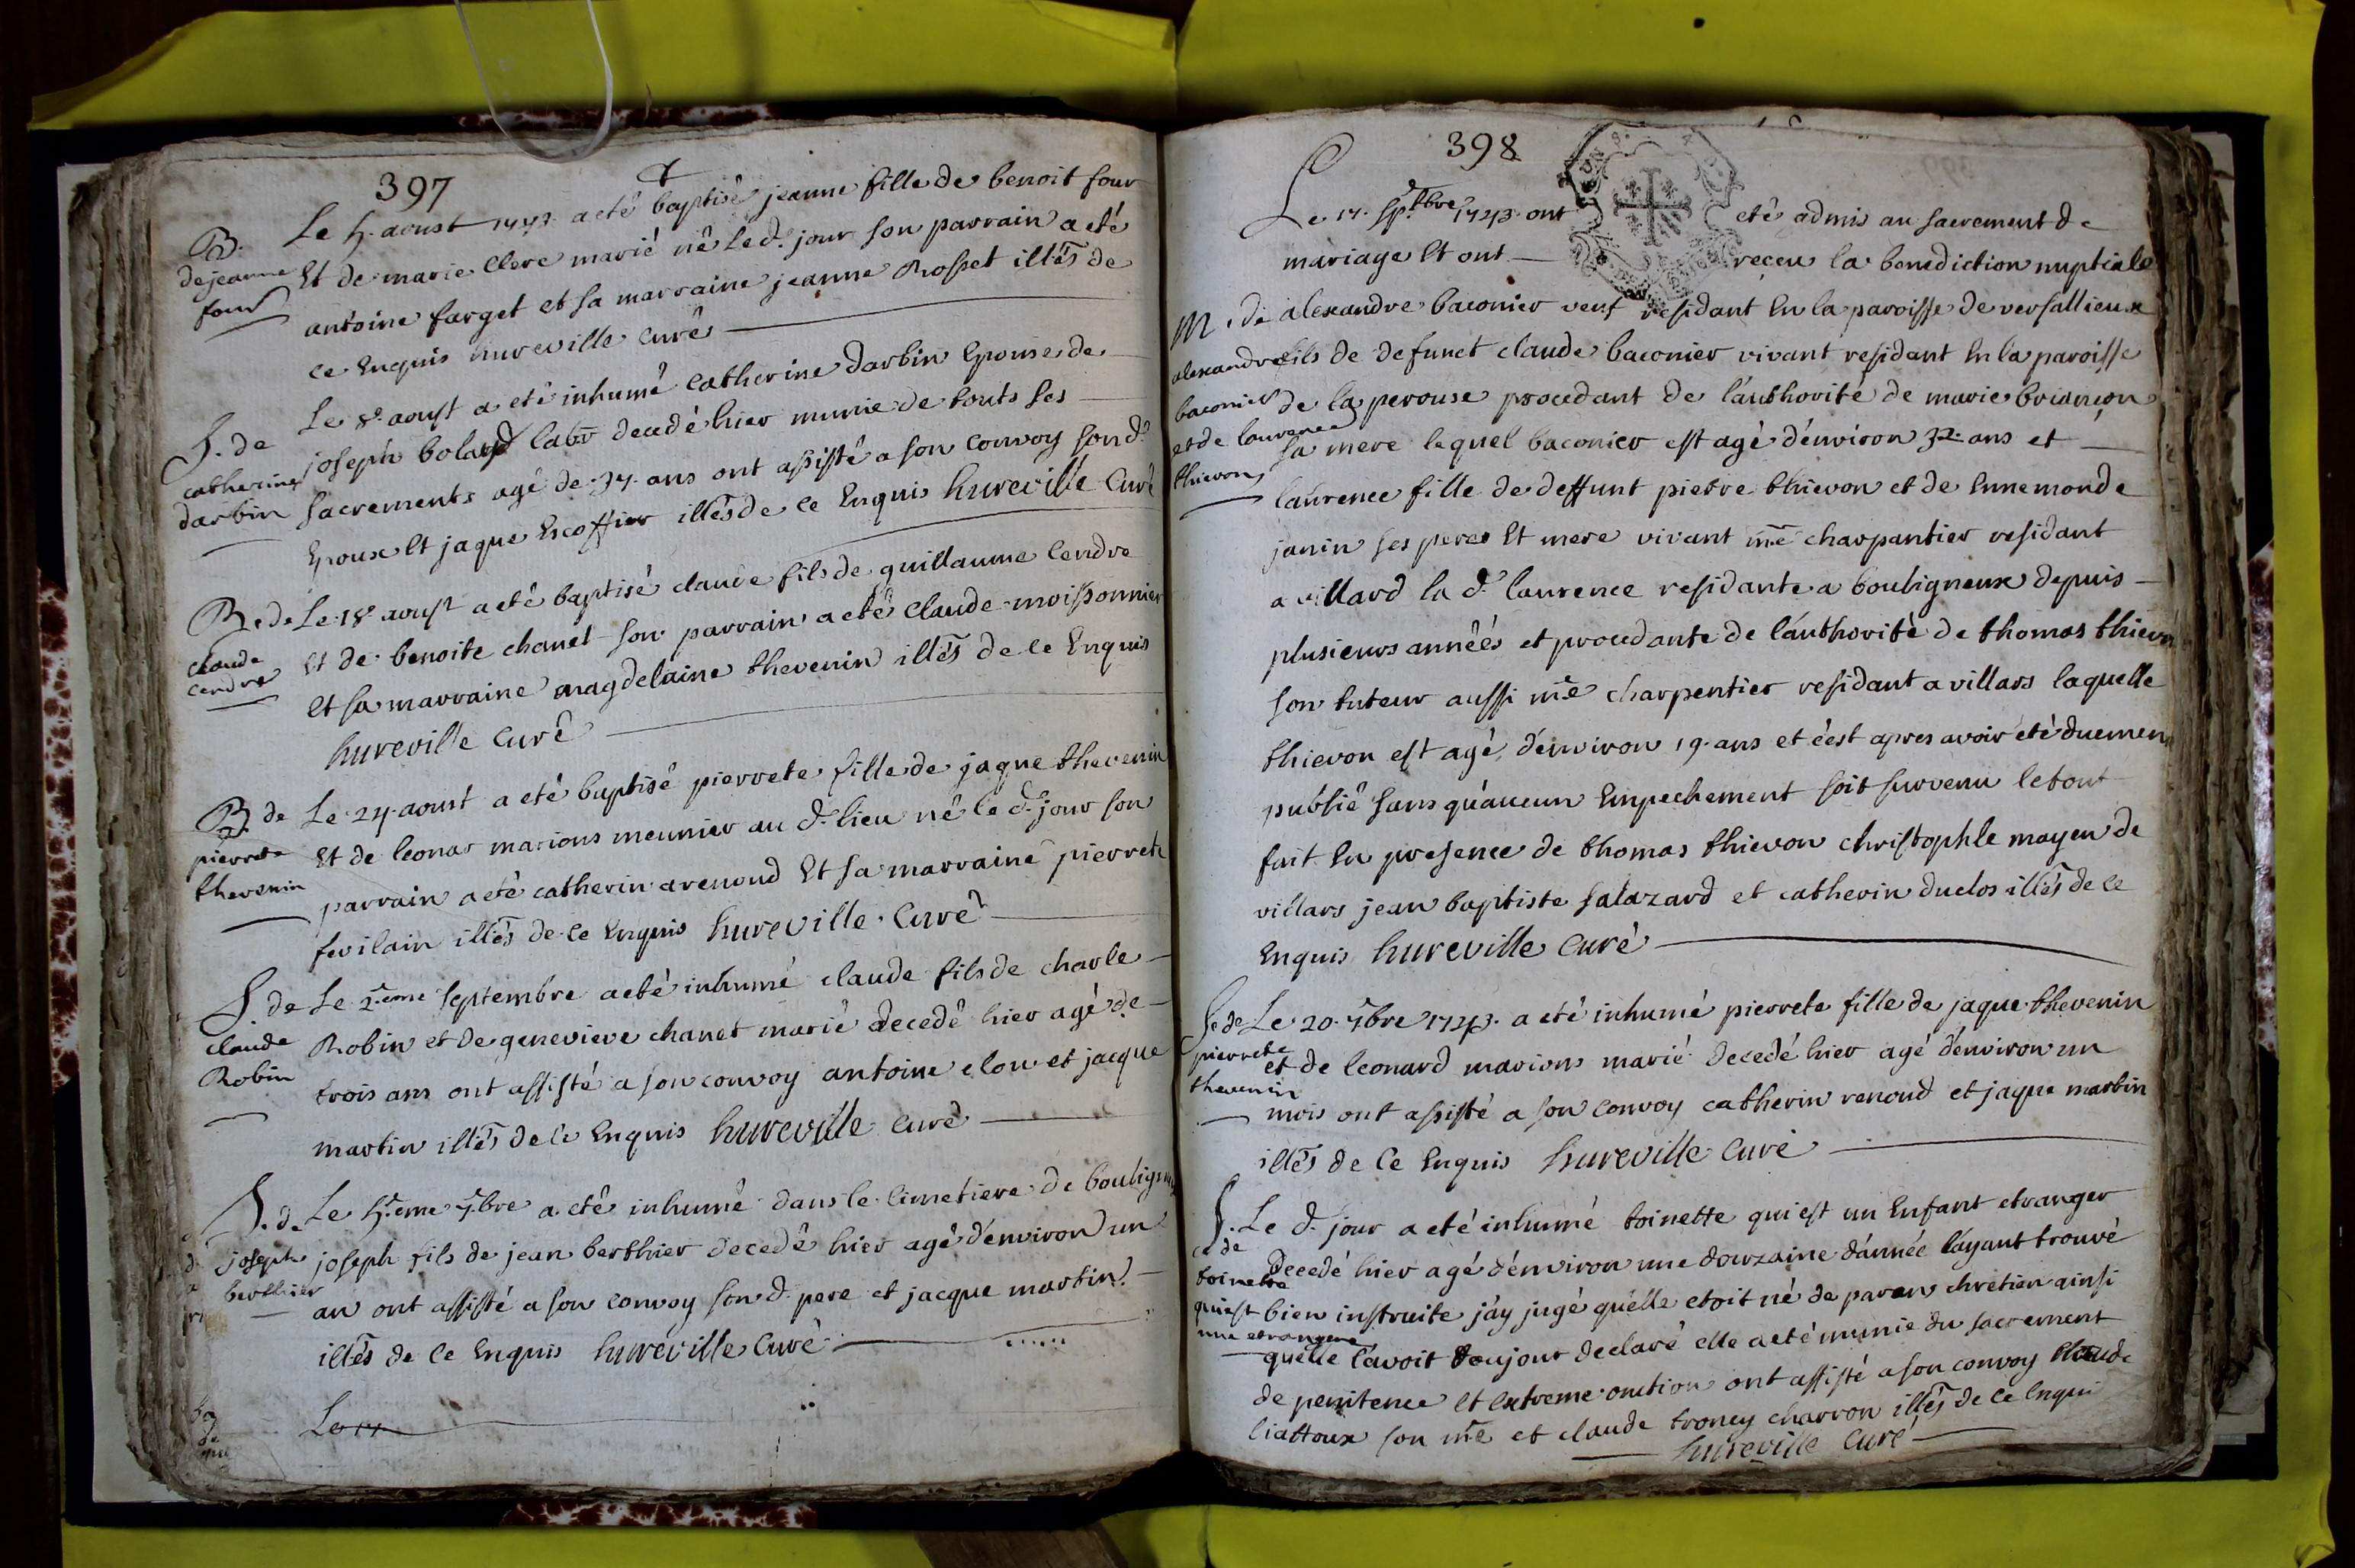 397
B.
de jeanne
four
Le 5. aoust 1743. a eté baptisé jeanne fille de benoit four
Et de marie Clere marié né le d. jour son parrain a eté
antoine farget et sa marraine jeanne Rosset illés de
ce Enquis hureville Curé
S. de
catherine
darbin
Le 8. aoust a eté inhumé catherine darbin Epouse de
joseph labr decedé hier munie de touts ses
sacrements agé de 34. ans ont assisté a son Convoy son d.
Epoux Et jaque Escoffier illés de ce Enquis hureville Curé
B. de
claude
cendre
Le 18 aoust a eté baptisé claude fils de guillaume Cendre
Et de benoite chanel son parrain a eté Claude moissonnier
Et sa marraine magdelaine thevenin illés de ce Enquis
hureville Curé
B. de
pierrete
thevenin
Le 24 aoust a eté baptisé pierrete fille de jaque thevenin
Et de leonar marions meunier au d. lieu né le d. jour son
parrain a eté catherin arenoud Et sa marraine pierrete
illés de ce Enquis hureville Curé
S. de
claude
Robin
Le 2.eme septembre a eté inhumé claude fils de charle
Robin et de genevieve chanet marié decedé hier agé de
trois ans ont assisté a son convoy antoine elon et jacque
martin illés de ce Enquis hureville Curé
S. de
joseph
berthier
Le 5.eme 7bre a eté inhumé dans le cimetiere de
joseph fils de jean berthier decedé hier agé d'environ un
an ont assisté a son convoy son d. pere et jacque martin
illés de ce Enquis hureville Curé
398
Le 17. sptbre 1743. ont eté admis au sacrement de
mariage Et ont receu la benediction nuptiale
M. de
alexandre
baconier
et de laurence
thievon
alexandre baconier veuf residant En la paroisse de versallieux
fils de defunct claude baconier vivant residant En la paroisse
de la perouse procedant de l'authorité de marie briançon
sa mere lequel baconier est agé d'environ 32. ans et
laurence fille de deffunt pierre thievon et de Ennemonde
janin ses peres Et mere vivant me charpantier residant
a villard la d. laurence residante a bouligneux depuis
plusieurs années et procedante de l'authorité de thomas thievon
son tuteur aussi me charpentier residant a villars laquelle
thievon est agé d'environ 19. ans et c'est apres avoir eté duement
publié sans qu'aucun Empechement soit survenu le tout
fait En presence de thomas thievon christophle mayen de
villars jean baptiste salazard et catherin duclos illés de ce
Enquis hureville Curé
S. de
pierrete
thevenin
Le 20. 7bre 1743. a eté inhumé pierrete fille de jaque thevenin
et de leonard marions marié decedé hier agé d'environ un
mois ont assisté a son convoy catherin renoud et jaque martin
illés de ce Enquis hureville Curé
S.
de
toinette
qui est
une etrangere
Le d. jour a eté inhumé toinette qui est un Enfant etranger
decedé hier agé d'environ une douzaine d'année l'ayant trouvé
bien instruite j'ay jugé qu'elle etoit né de paren chretien ainsi
qu'elle l'avoit toujour declaré elle a eté munie du sacrement
de penitence Et Extreme onction ont assisté a son convoy
liattoux son me et claude troncy charron illés de ce Enqui
hureville Curé